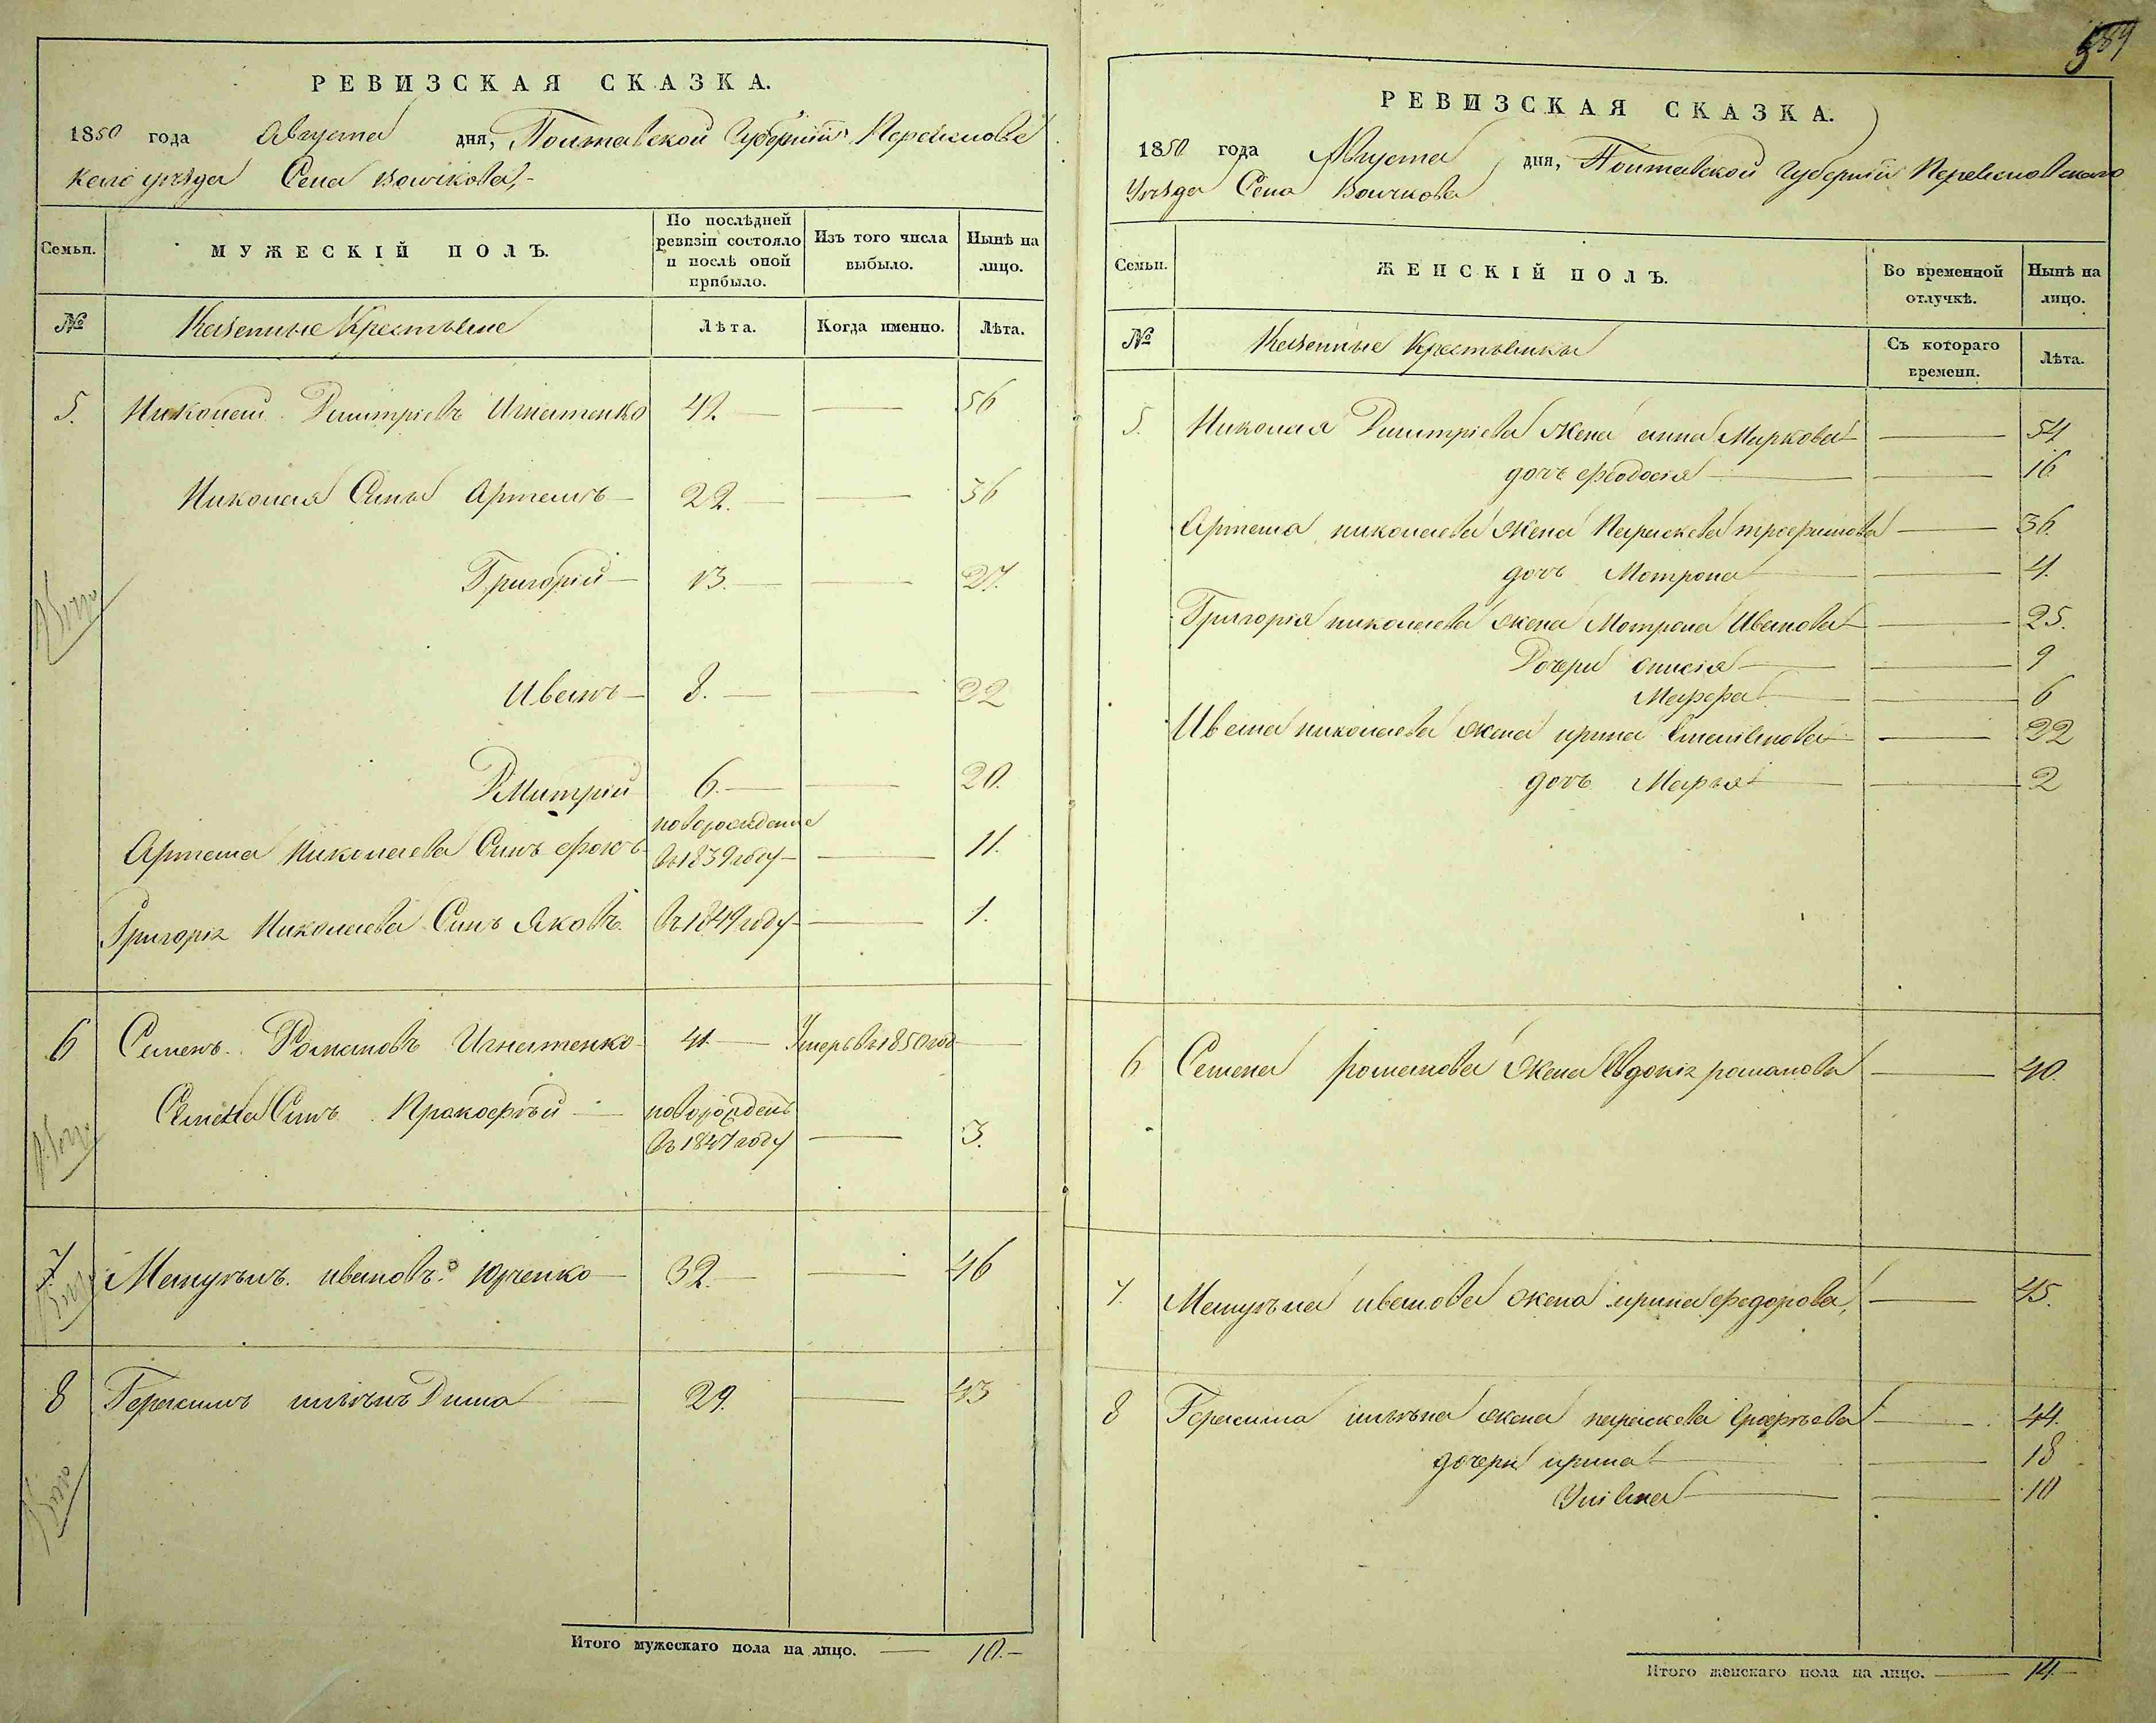 589
РЕВИЗСКАЯ СКАЗКА.
1850 года Августа дня, Полтавской Губерніи Переяслов
скаго уезда Села Волчкова,
Семьи.
МУЖЕСКІЙ ПОЛЪ.
По послѣдней ревизіи состояло и послѣ оной прибыло.
Изъ того числа выбыло.
Нынѣ на лицо.
№
Казенные Крестьяне
Лѣта.
Когда именно.
Лѣта.
5. Николай Димитріевъ Игнатенко 42. — — 56
Николая Сины Артемъ — 22. — — 36
Григорій — 13. — — 27.
Иванъ — 8. — — 22
Дмитрій 6. — — 20.
новорожденые
Артема Николаева Синъ Фокъ въ 1839 году — — 11.
Григорія Николаева Синъ Яковъ. въ 1849 году — — 1.
6 Семенъ Романовъ Игнатенко 41 — Умеръ въ 1850 год —
Семена Синъ Прокофтый — новорожденъ
въ 1847 году — 3.
7. Мануилъ ивановъ Юрченко — 32. — — 46
8 Герасимъ ильинъ Дима — 29. — 43
Итого мужескаго пола на лицо. — 10. —
РЕВИЗСКАЯ СКАЗКА.
1850 года Августа дня, Полтавской Губерніи Переясловскаго
Уезда Села Волчкова
Семьи.
ЖЕНСКІЙ ПОЛЪ.
Во временной отлучкѣ.
Нынѣ на лицо.
№
Казенные Крестьянки
Съ котораго времени.
Лѣта.
5. Николая Димитріева жена анна Маркова — — 54
дочь феодосія — — 16
Артема николаева жена Параскева трофимова — 36.
дочь Мотрона — — 4.
Григорія николаева жена Мотрона Иванова — — 25.
Дочери анисія — — 9
Марфа — — 6
Ивана николаева жена ирина Емеліянова — — 22
дочь Марья — — 2
6 Семена романова жена Евдокія романова — 40.
7. Мануила иванова жена ирина федорова, — 45.
8 Герасима ильина жена параскева — 44.
дочери ирина — — 18
Уліяна — — 10
Итого женскаго пола на лицо. — 14 —